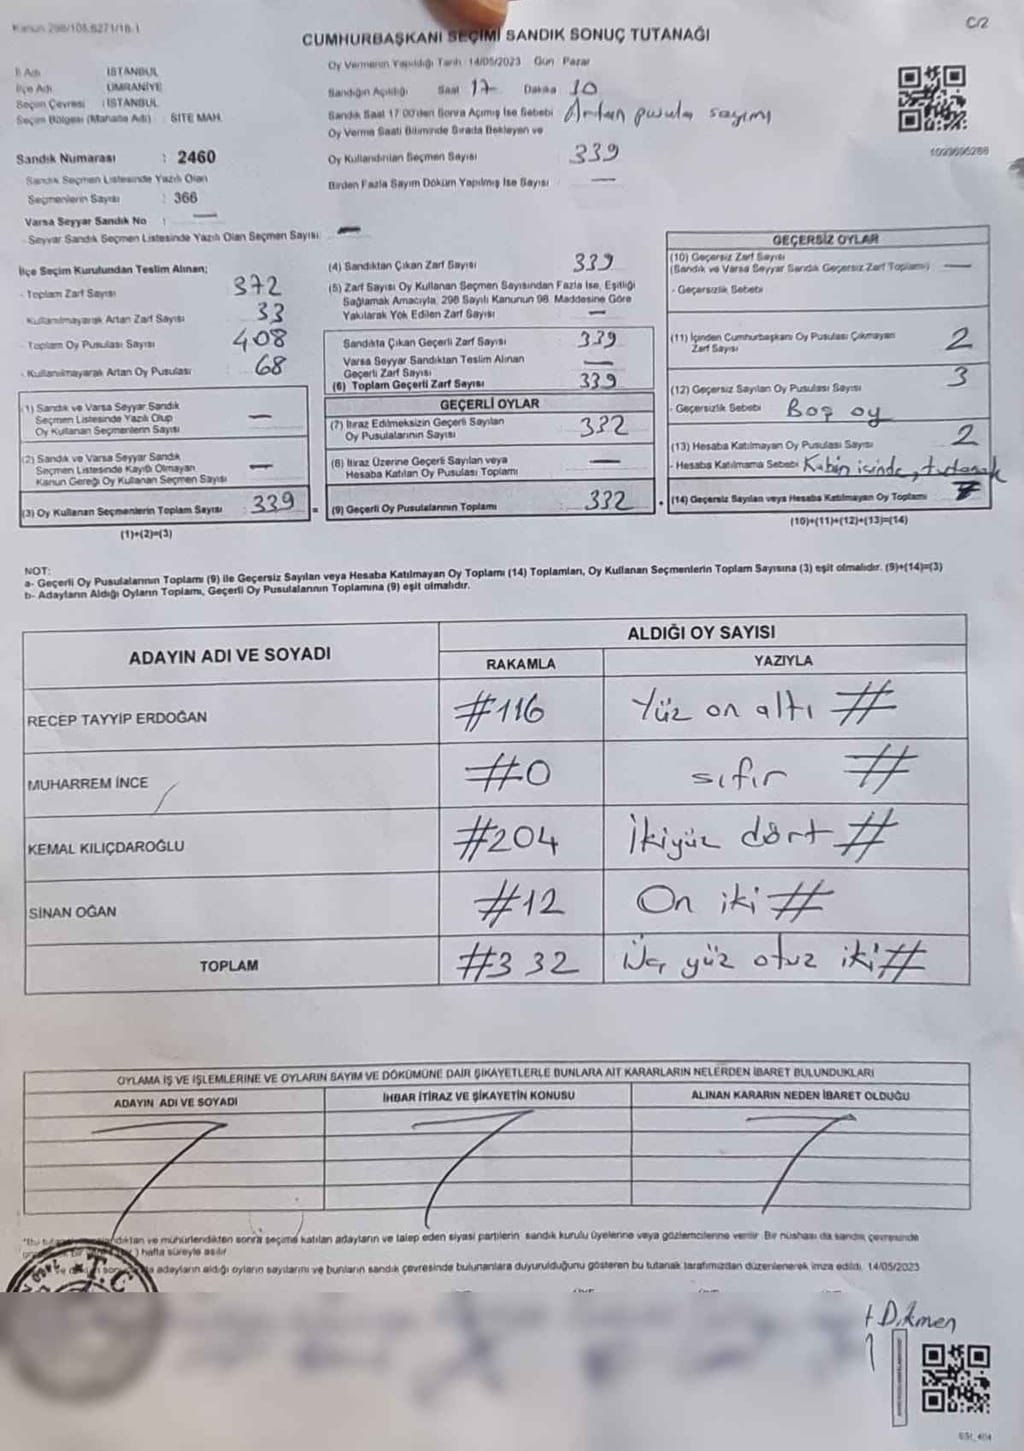 Kanun 298/105,6271/18.1
C/2
CUMHURBAŞKANI SEÇİMİ SANDIK SONUÇ TUTANAĞI
İl Adı : İSTANBUL
İlçe Adı : ÜMRANİYE
Seçim Çevresi : İSTANBUL
Seçim Bölgesi (Mahalle Adı) : SİTE MAH.
Sandık Numarası : 2460
Sandık Seçmen Listesinde Yazılı Olan
Seçmenlerin Sayısı : 366
Varsa Seyyar Sandık No : —
- Seyyar Sandık Seçmen Listesinde Yazılı Olan Seçmen Sayısı: —
Oy Vermenin Yapıldığı Tarih : 14/05/2023 Gün : Pazar
Sandığın Açıldığı Saat 17 Dakika 10
Sandık Saat 17:00'den Sonra Açılmış İse Sebebi Artan pusula sayımı
Oy Verme Saati Bitiminde Sırada Bekleyen ve
Oy Kullandırılan Seçmen Sayısı 339
Birden Fazla Sayım Döküm Yapılmış İse Sayısı —
1099696286
İlçe Seçim Kurulundan Teslim Alınan;
- Toplam Zarf Sayısı : 372
Kullanılmayarak Artan Zarf Sayısı : 33
- Toplam Oy Pusulası Sayısı : 408
- Kullanılmayarak Artan Oy Pusulası : 68
(1) Sandık ve Varsa Seyyar Sandık
Seçmen Listesinde Yazılı Olup
Oy Kullanan Seçmenlerin Sayısı —
(2) Sandık ve Varsa Seyyar Sandık
Seçmen Listesinde Kayıtlı Olmayan
Kanun Gereği Oy Kullanan Seçmen Sayısı —
(3) Oy Kullanan Seçmenlerin Toplam Sayısı : 339
(1)+(2)=(3)
(4) Sandıktan Çıkan Zarf Sayısı 339
(5) Zarf Sayısı Oy Kullanan Seçmen Sayısından Fazla İse, Eşitliği
Sağlamak Amacıyla, 298 Sayılı Kanunun 98. Maddesine Göre
Yakılarak Yok Edilen Zarf Sayısı —
Sandıkta Çıkan Geçerli Zarf Sayısı 339
Varsa Seyyar Sandıktan Teslim Alınan
Geçerli Zarf Sayısı —
(6) Toplam Geçerli Zarf Sayısı 339
GEÇERLİ OYLAR
(7) İtiraz Edilmeksizin Geçerli Sayılan
Oy Pusulalarının Sayısı 332
(8) İtiraz Üzerine Geçerli Sayılan veya
Hesaba Katılan Oy Pusulası Toplamı —
= (9) Geçerli Oy Pusulalarının Toplamı : 332
GEÇERSİZ OYLAR
(10) Geçersiz Zarf Sayısı
(Sandık ve Varsa Seyyar Sandık Geçersiz Zarf Toplamı) —
- Geçersizlik Sebebi
(11) İçinden Cumhurbaşkanı Oy Pusulası Çıkmayan
Zarf Sayısı 2
(12) Geçersiz Sayılan Oy Pusulası Sayısı 3
- Geçersizlik Sebebi Boş oy
(13) Hesaba Katılmayan Oy Pusulası Sayısı 2
- Hesaba Katılmama Sebebi Kabin içinde, tutanak
+ (14) Geçersiz Sayılan veya Hesaba Katılmayan Oy Toplamı 7
(10)+(11)+(12)+(13)=(14)
NOT:
a- Geçerli Oy Pusulalarının Toplamı (9) ile Geçersiz Sayılan veya Hesaba Katılmayan Oy Toplamı (14) Toplamları, Oy Kullanan Seçmenlerin Toplam Sayısına (3) eşit olmalıdır. (9)+(14)=(3)
b- Adayların Aldığı Oyların Toplamı, Geçerli Oy Pusulalarının Toplamına (9) eşit olmalıdır.
ADAYIN ADI VE SOYADI
ALDIĞI OY SAYISI
RAKAMLA YAZIYLA
RECEP TAYYİP ERDOĞAN #116 Yüz on altı #
MUHARREM İNCE #0 sıfır #
KEMAL KILIÇDAROĞLU #204 İkiyüz dört #
SİNAN OĞAN #12 On iki #
TOPLAM #332 Üç yüz otuz iki #
OYLAMA İŞ VE İŞLEMLERİNE VE OYLARIN SAYIM VE DÖKÜMÜNE DAİR ŞİKAYETLERLE BUNLARA AİT KARARLARIN NELERDEN İBARET BULUNDUKLARI
ADAYIN ADI VE SOYADI İHBAR İTİRAZ VE ŞİKAYETİN KONUSU ALINAN KARARIN NEDEN İBARET OLDUĞU
ve mühürlendikten sonra seçime katılan adayların ve talep eden siyasi partilerin sandık kurulu üyelerine veya gözlemcilerine verilir. Bir nüshası da sandık çevresinde
hafta süreyle asılır
adayların aldığı oyların sayılarını ve bunların sandık çevresinde bulunanlara duyurulduğunu gösteren bu tutanak tarafımızdan düzenlenerek imza edildi. 14/05/2023
T.C
Dikmen